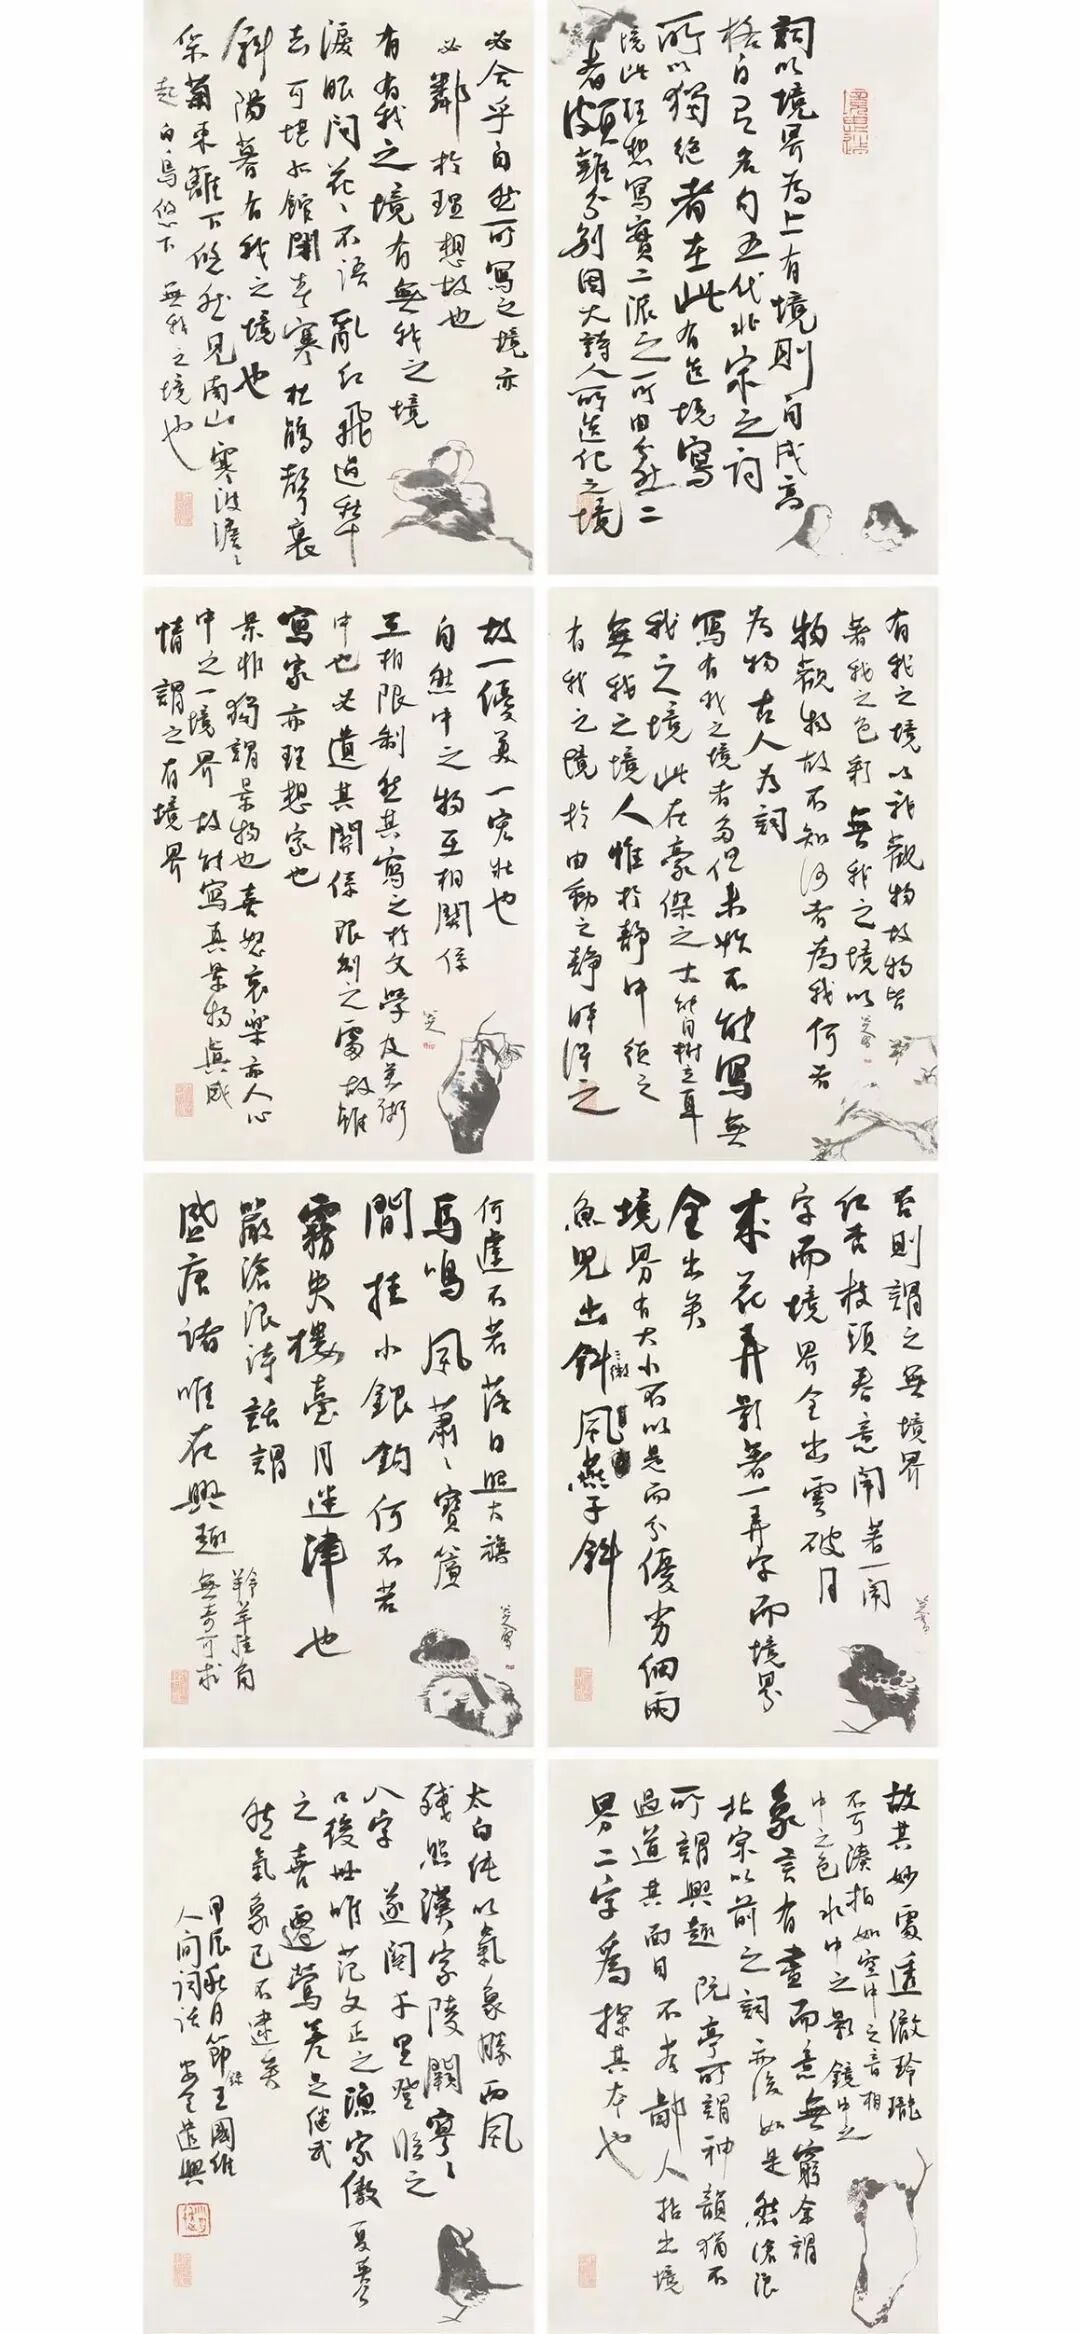 詞以境界為上有境則自成高
格自有名句五代北宋之詞
所以獨絕者在此有造境寫
境此理想寫實二派之所由分然二
者頗難分別因大詩人所造化之境
必合乎自然所寫之境亦
必鄰於理想故也
有有我之境有無我之境
淚眼問花〻不語亂紅飛過鞦
去可堪孤館閉春寒杜鵑聲裏
斜陽暮有我之境也
采菊東籬下悠然見南山寒波澹〻
起白鳥悠〻下無我之境也
有我之境以我觀物故物皆
著我之色彩無我之境以
物觀物故不知何者為我何者
為物古人為詞
寫有我之境者多但未始不能寫無
我之境此在豪傑之士能自樹立耳
無我之境人惟於靜中得之
有我之境於由動之靜時得之
故一優美一宏壯也
自然中之物互相關係
互相限制然其寫之於文學及美術
中也必遺其關係限制之處故雖
寫實家亦理想家也
景非獨謂景物也喜怒哀樂亦人心
中之一境界故能寫真景物真感
情謂之有境界
否則謂之無境界
紅杏枝頭春意鬧著一鬧
字而境界全出雲破月
來花弄影著一弄字而境界
全出矣
境界有大小不以是而分優劣細雨
魚兒出微風燕子斜
何遽不若落日照大旗
馬鳴風蕭〻寶簾
閒挂小銀鉤何不若
霧失樓臺月迷津也
嚴滄浪詩話謂
盛唐諸唯在興趣
羚羊挂角
無可求
故其妙處透澈玲瓏
不可湊拍如空中之音相
中之色水中之影鏡中之
象言有盡而意無窮余謂
北宋以前之詞亦復如是然滄浪
所謂興趣阮亭所謂神韻猶不
過道其面目不若鄙人拈出境
界二字為探其本也
太白純以氣象勝西風
殘照漢家陵闕寥〻
八字遂關千里登臨之
口後世唯范文正之漁家傲夏英公
之喜遷鶯差足繼武
然氣象已不逮矣
甲辰秋月節錄王國維
人間詞話